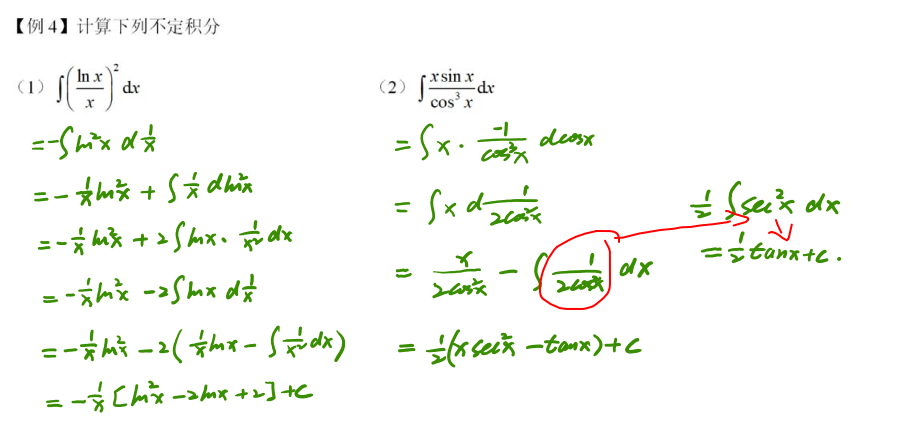 【例 4】计算下列不定积分
（1）∫(ln x / x)² dx
= -∫ln²x d 1/x
= - 1/x ln²x + ∫ 1/x d ln²x
= - 1/x ln²x + 2∫lnx · 1/x² dx
= - 1/x ln²x - 2∫lnx d 1/x
= - 1/x ln²x - 2( 1/x lnx - ∫ 1/x² dx)
= - 1/x [ln²x - 2lnx + 2] + C
（2）∫ x sin x / cos³ x dx
= ∫x · -1/cos³x dcosx
= ∫x d 1/2cos²x
= x/2cos²x - ∫ 1/2cos²x dx
= 1/2 (x sec²x - tanx) + C
1/2 ∫sec²x dx
= 1/2 tanx + C.